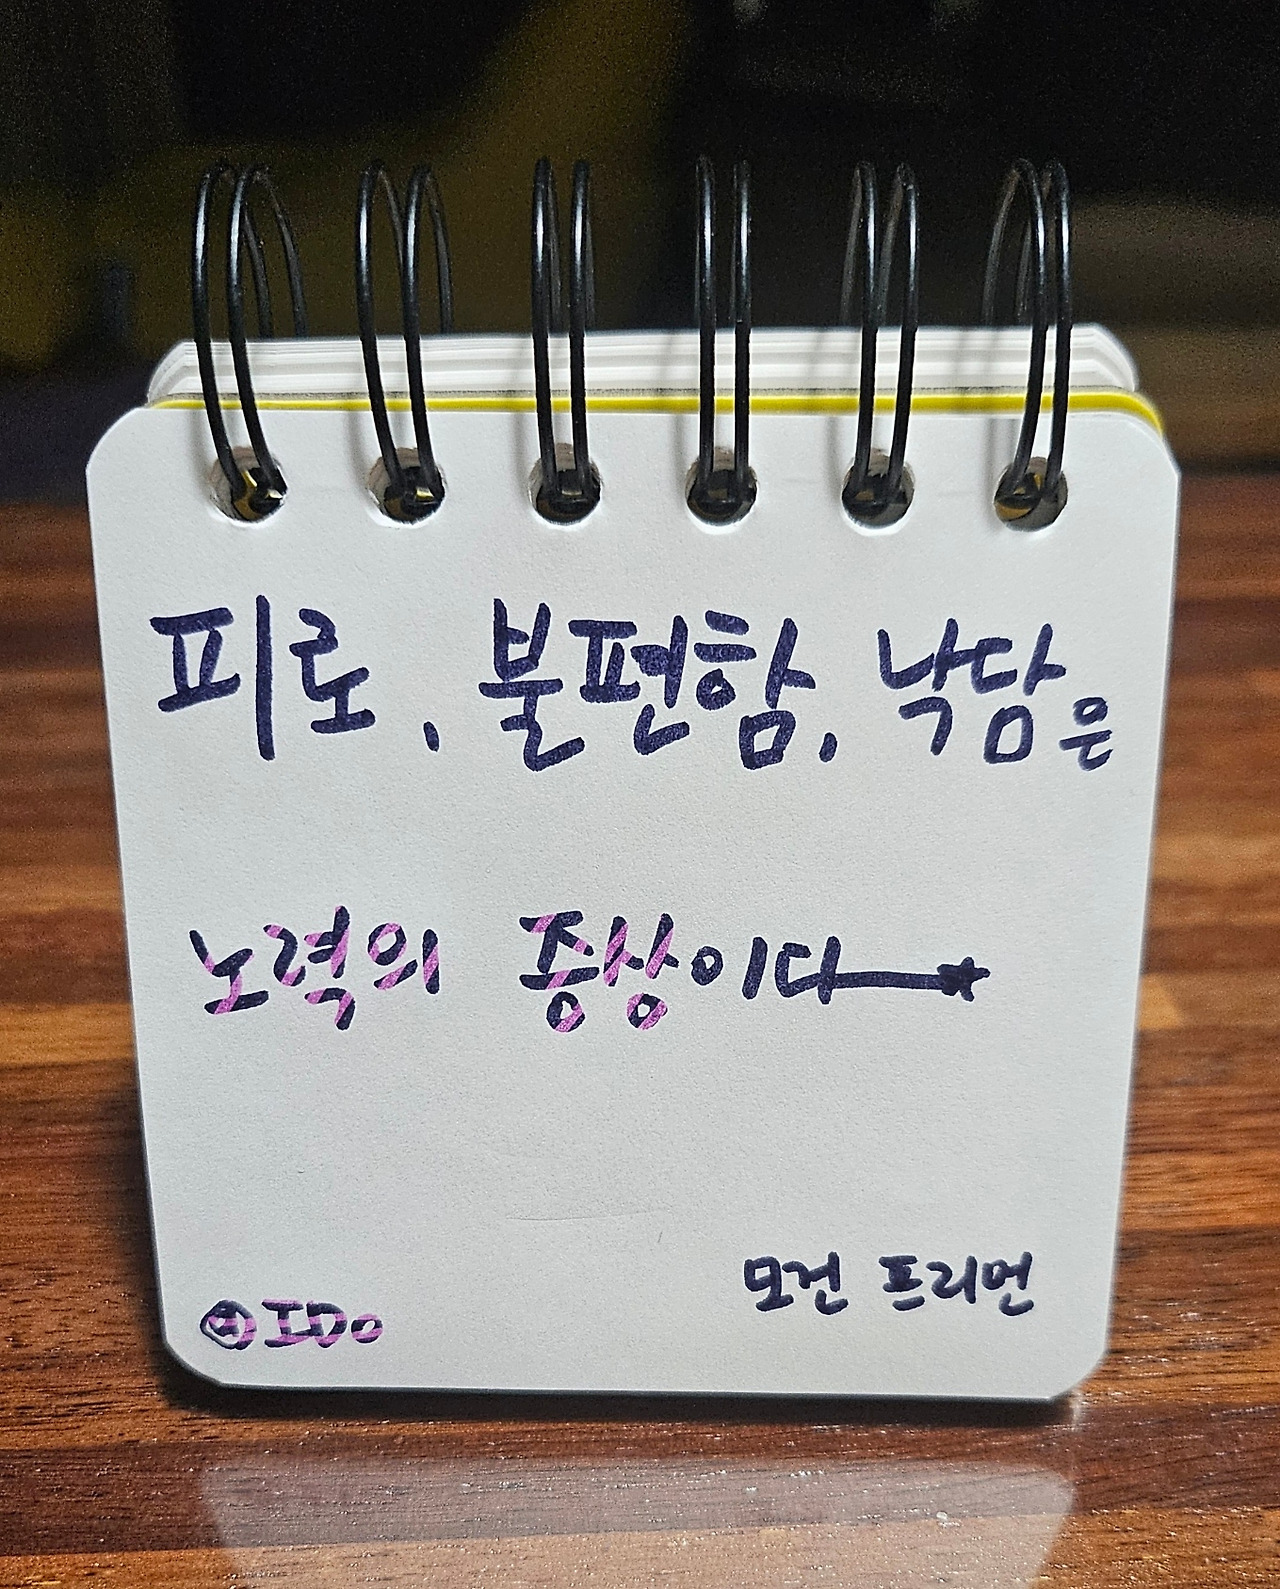 피로, 불편함, 낙담은
노력의 증상이다
모건 프리먼
IDo